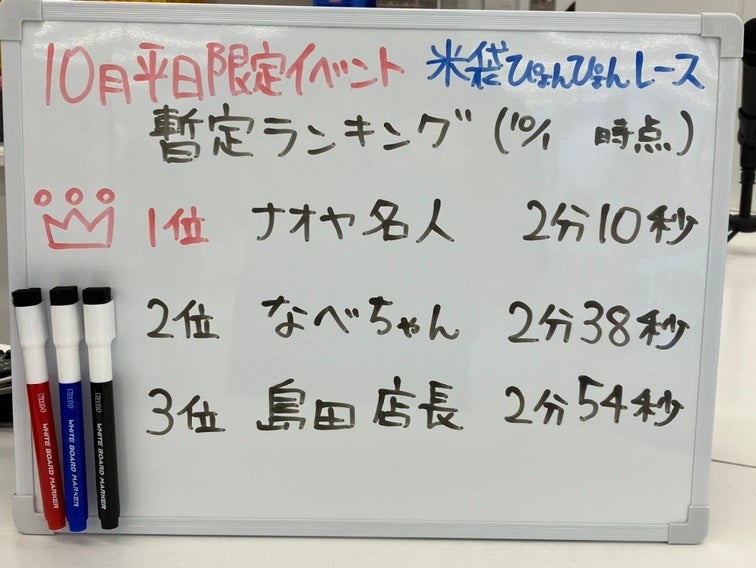 10月平日限定イベント 米袋ぴょんぴょんレース
暫定ランキング (10/1 時点)
1位 ナオヤ名人 2分10秒
2位 なべちゃん 2分38秒
3位 島田店長 2分54秒
WHITE BOARD MARKER
WHITE BOARD MARKER
WHITE BOARD MARKER